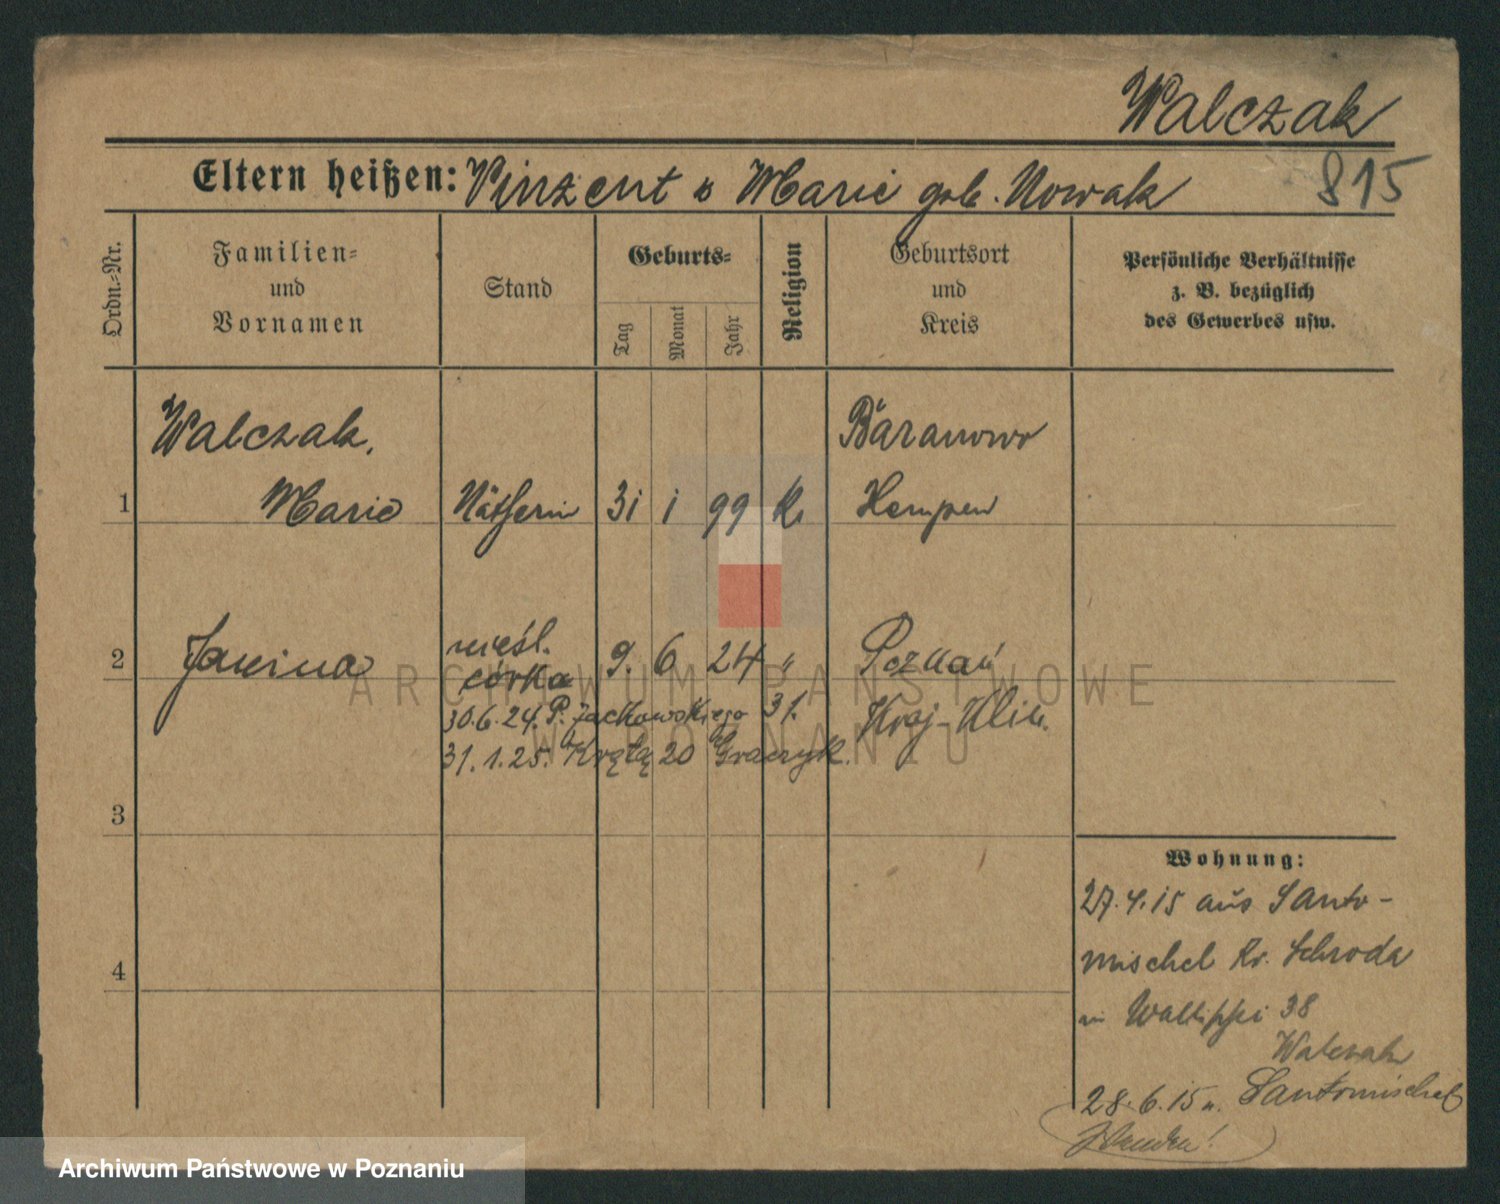 Walczak
815
Eltern heißen: Vinzent u Marie geb. Nowak
Ordn.=Nr.
Familien=
und
Vornamen
Stand
Geburts=
Tag
Monat
Jahr
Religion
Geburtsort
und
Kreis
Persönliche Verhältnisse
z. B. bezüglich
des Gewerbes usw.
1
Walczak,
Marie
Nätherin
31 1 99 k.
Baranowo
Kempen
2
Janina
nieśl.
córka
9. 6 24 "
Poznań
30.6.24. P. Jackowskiego 31.
31.1.25. Krętą 20 Graczyk.
3
4
Wohnung:
27.4.15 aus Santo-
mischel Kr. Schroda
38
Walczak
28.6.15 n. Santomischel
ARCHIWUM PAŃSTWOWE
W POZNANIU
Archiwum Państwowe w Poznaniu